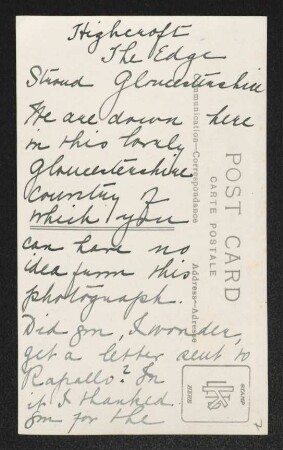 Highcroft
The Edge
Stroud Gloucestershire
We are down here
in this lovely
Gloucestershire
country of
which you
can have no
idea from this
photograph.
Did you, I wonder,
get a letter sent to
Rapallo? In
it I thanked
you for the
POST CARD
CARTE POSTALE
Communication—Correspondance
Address—Adresse
STAMP
HERE